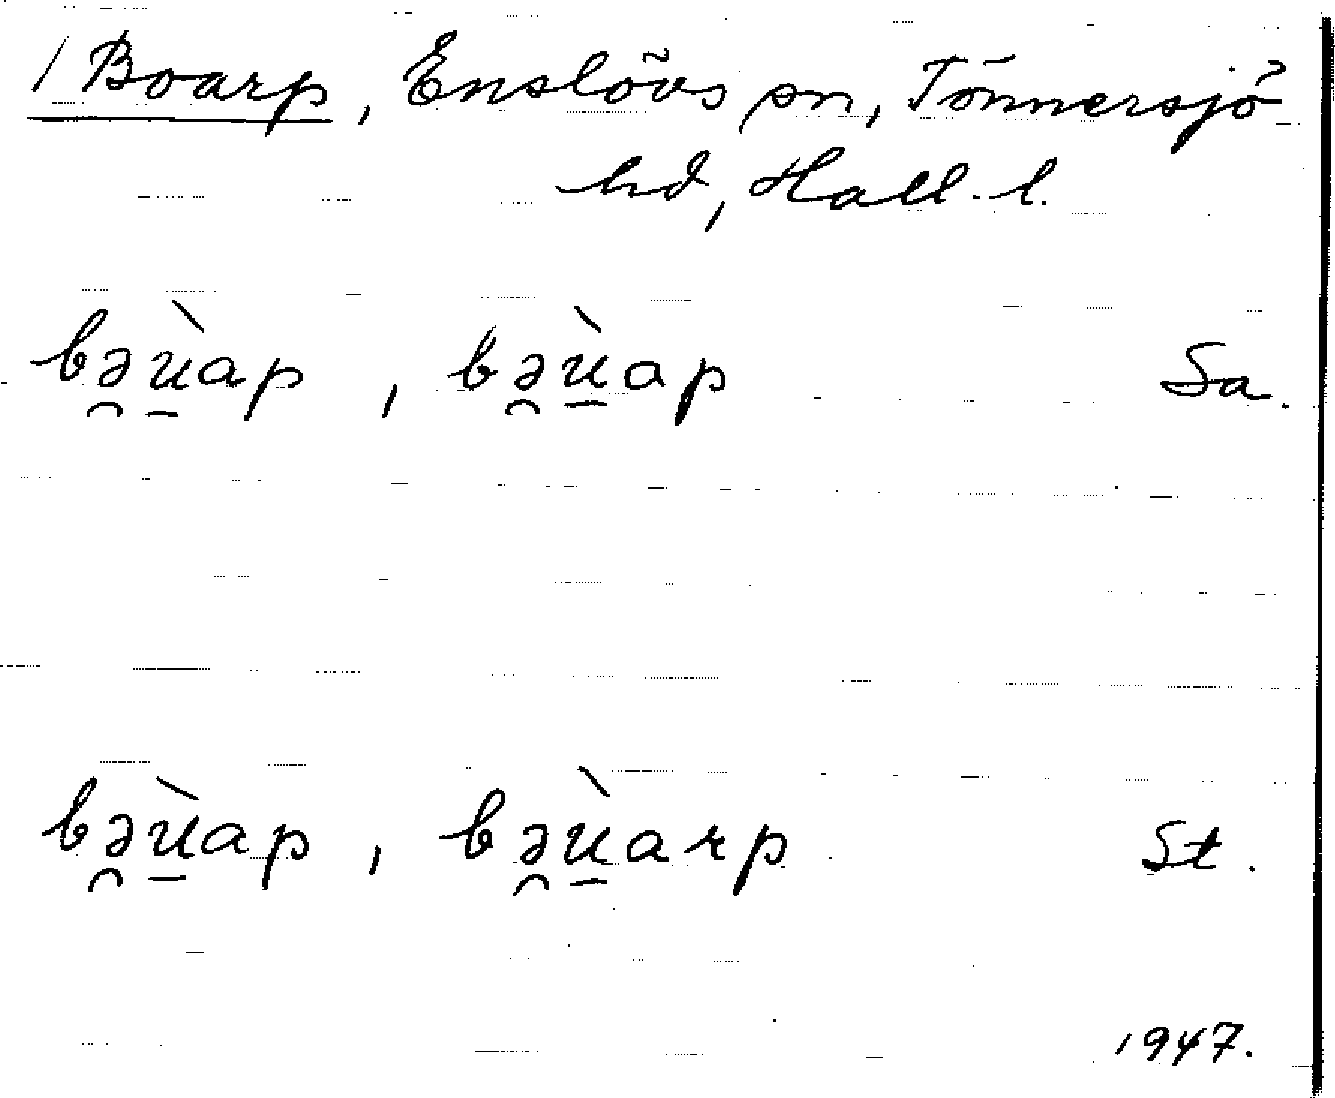 / Boarp, Enslövs sn, Tönnersjö
hd, Hall. l.
bə̯ṳ̀ap , bə̯ṳ̀ap Sa.
bə̯ṳ̀ap , bə̯ṳ̀arp St.
1947.